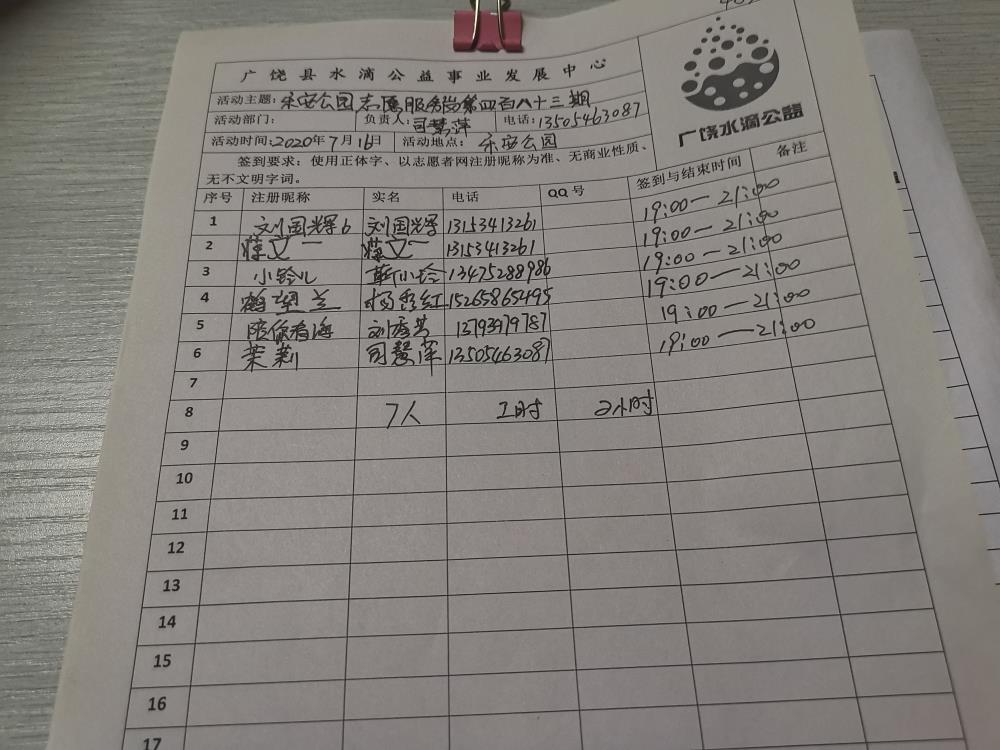 广饶县水滴公益事业发展中心
广饶水滴公益
活动主题: 乐安公园志愿服务岗第四百八十三期
活动部门: 负责人: 司慧萍 电话: 13505463087
活动时间: 2020年7月16日 活动地点: 乐安公园
签到要求: 使用正体字、以志愿者网注册昵称为准、无商业性质、
无不文明字词。
序号 注册昵称 实名 电话 QQ号 签到与结束时间 备注
1 刘国辉6 刘国辉 13153413261 19:00—21:00
2 薛文一 薛文一 13153413261 19:00—21:00
3 小铃儿 靳小玲 13475288986 19:00—21:00
4 鹤望兰 杨秀红 15265865495 19:00—21:00
5 陪你看海 刘秀芳 13793979787 19:00—21:00
6 茉莉 司慧萍 13505463087 19:00—21:00
7
8 7人 工时 2小时
9
10
11
12
13
14
15
16
17